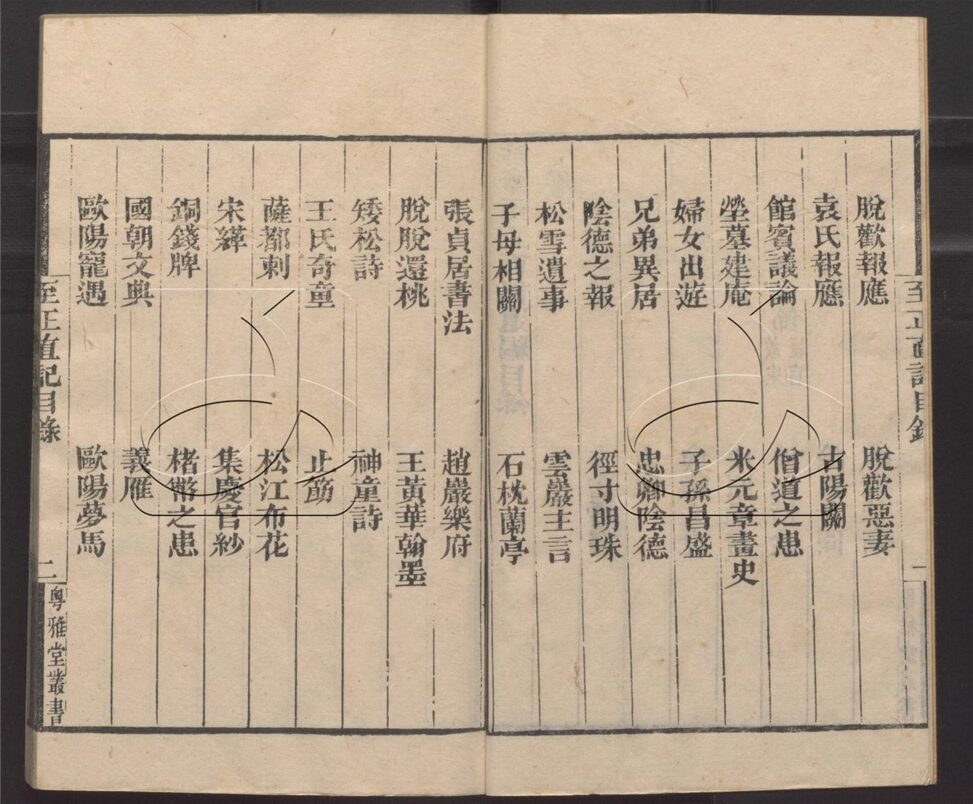 至正直記目錄
一
脫歡報應
脫歡惡妻
袁氏報應
古陽關
館賓議論
僧道之患
塋墓建庵
米元章畫史
婦女出遊
子孫昌盛
兄弟異居
忠卿陰德
陰德之報
徑寸明珠
松雪遺事
雲巖主言
子母相關
石枕蘭亭
張貞居書法
趙巖樂府
脫脫還桃
王黃華翰墨
矮松詩
神童詩
王氏奇童
止筯
薩都剌
松江布花
宋緙
集慶官紗
銅錢牌
楮幣之患
國朝文典
義雁
歐陽寵遇
歐陽夢馬
至正直記目錄
二
粵雅堂叢書